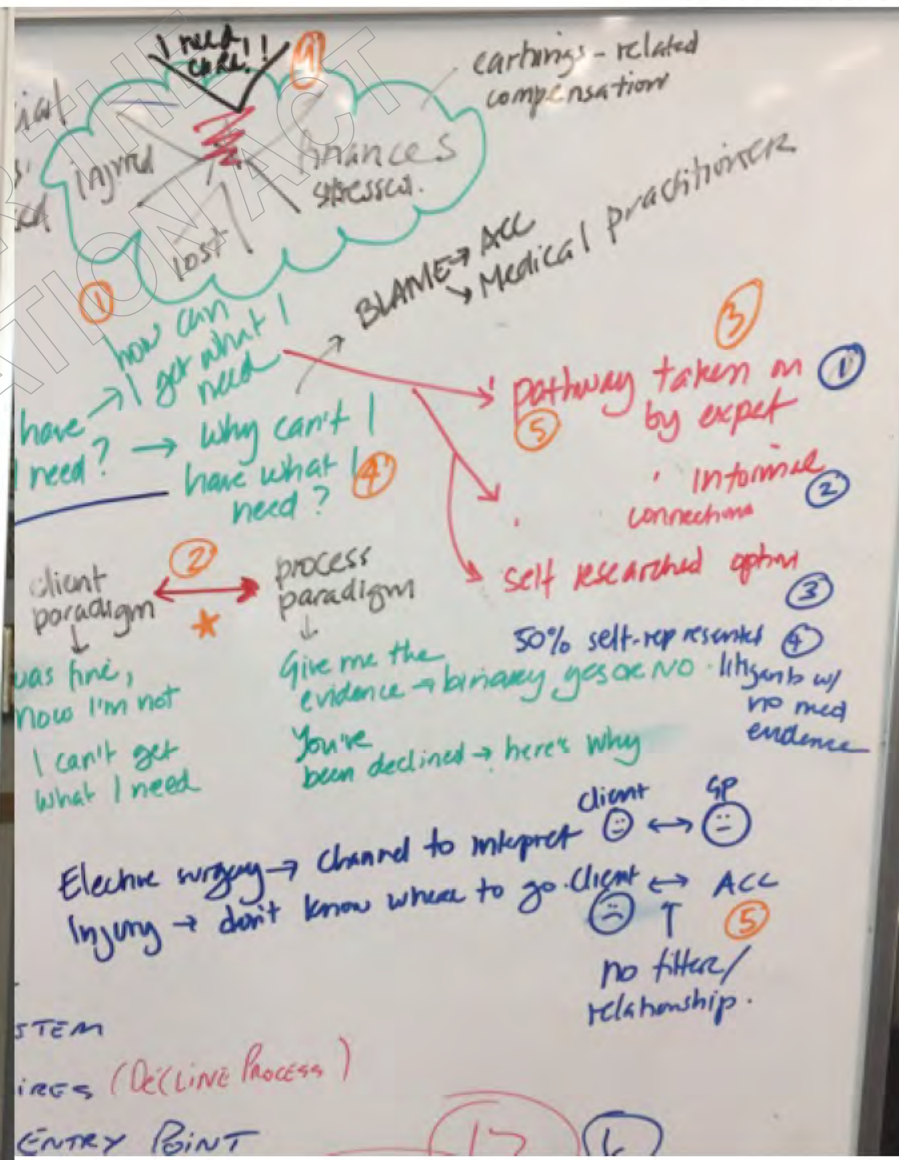 I need
care!!
earnings-related
compensation
injured
finances
stressed.
lost
BLAME → ACC
↘ Medical practitioner
①
how can
I get what I
need
have →
I need? → Why can't I
have what I ④
need?
③
pathway taken on ①
⑤ by expet
· Informal ②
connections
self researched option
③
② 
client ↔ process
paradigm paradigm
was fine,
now I'm not
I can't get
what I need
Give me the
evidence → binary yes or no ·
You've
been declined → here's why
50% self-represented ④
litigants w/
no med
evidence
Client ↔ GP
Elective surgery → Channel to interpret
Injury → don't know where to go · Client ↔ ACC
⑤
no filter/
relationship.
STEM
IRES (DECLINE PROCESS)
ENTRY POINT
17